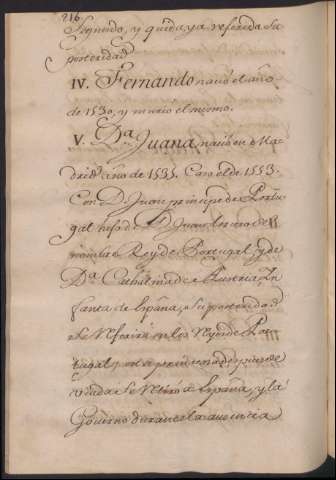 216
Segundo, y queda ya referida su
posteridad
IV. Fernando nació el año
de 1530, y murio el mismo.
V. Da. Juana, nació en Mad
rid el año de 1535. Caso el de 1553.
Con D. Juan principe de Portu
gal hijo de D. Juan tercero de el
nombre Rey de Portugal, y de
Da. Cathalina de Austria In
fanta de España, su posteridad
se referirá en los Reyes de Por
tugal, y
viuda se retiro a España, y la
Governo durante la ausencia